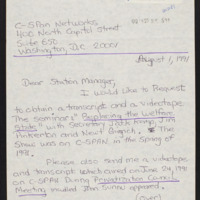 C-SPAN Networks
400 North Capitol Street
Suite 650
Washington, D.C. 20001
August 1, 1991
Dear Station Manager,
I would like to Request
to obtain a transcript and a videotape
The Seminar "Replacing the Welfare
State" with Secretary Jack Kemp, Jim
Pinkerton and Newt Gingrich. The
Show was on C-SPAN, in the Spring of
1991.
Please also send me a videotape
and transcript which aired on June 24, 1991
on C-SPAN During
Meeting John Sununu appeared.
(over)